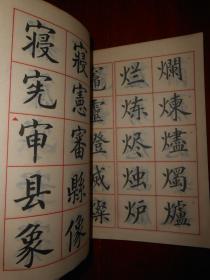 爛煉燼燭爐
烂炼烬烛炉
寢憲審縣像
寝宪审县象